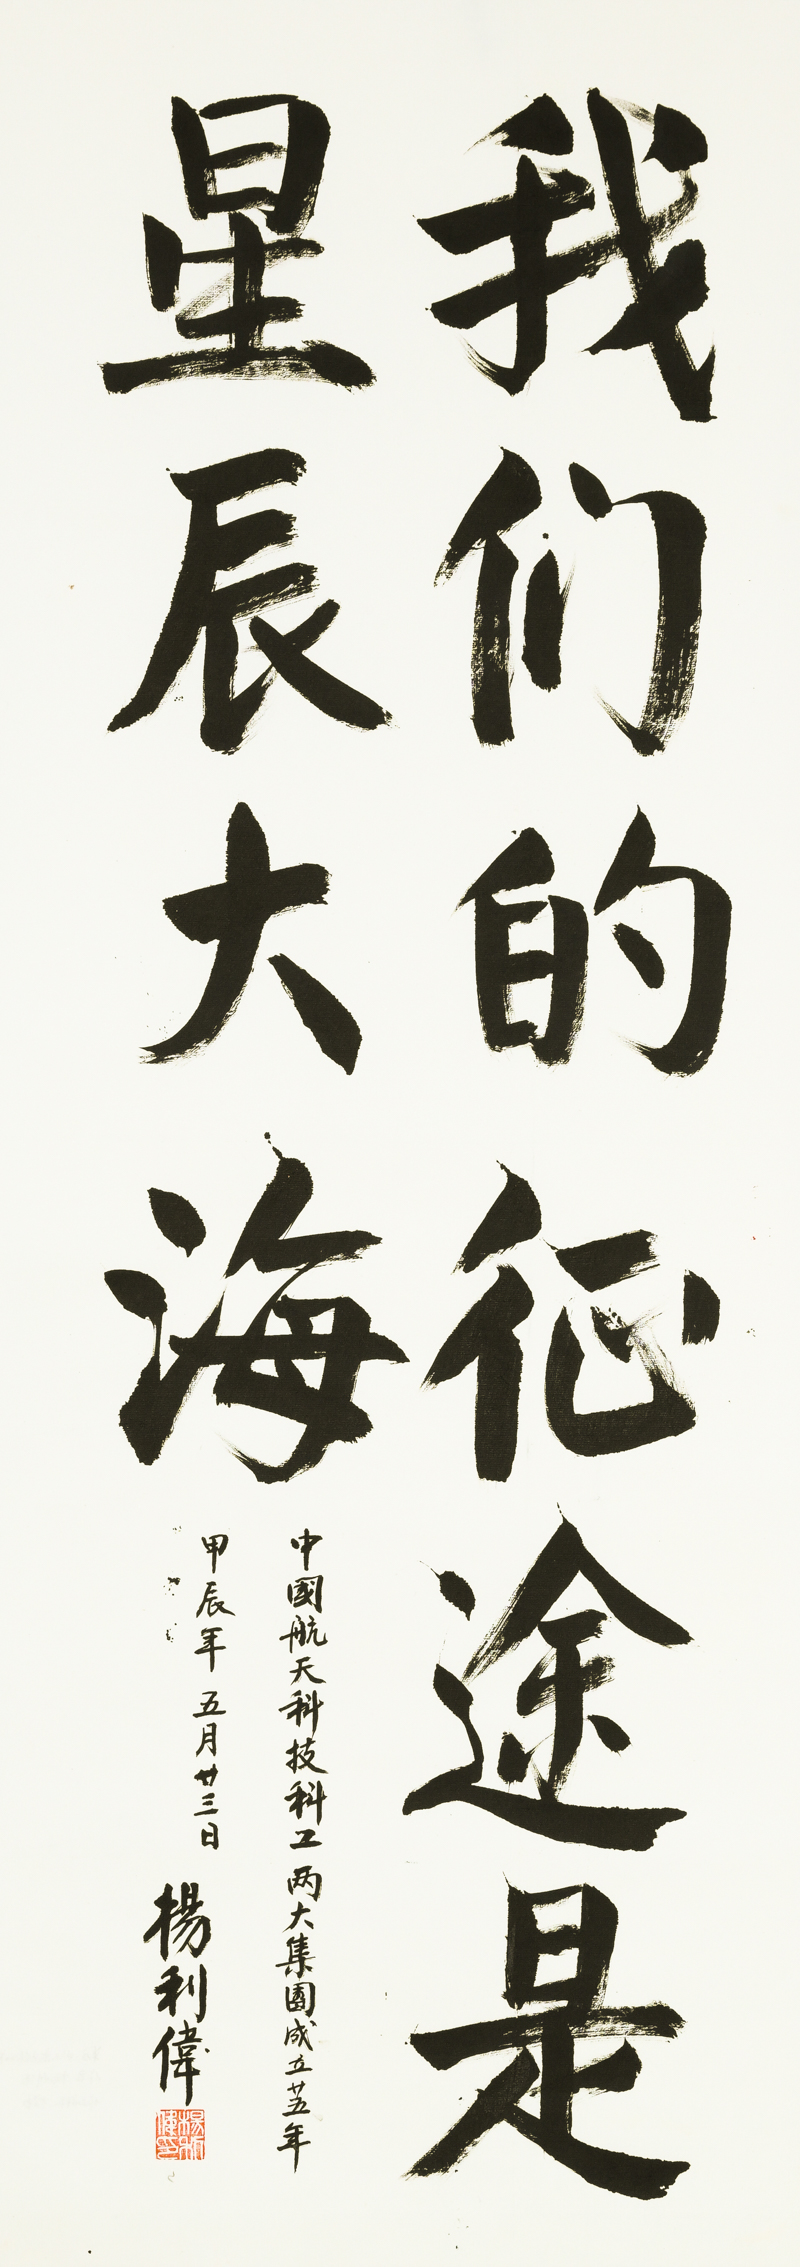 我们的征途是
星辰大海
中國航天科技科工两大集團成立廿五年
甲辰年五月廿三日
楊利偉